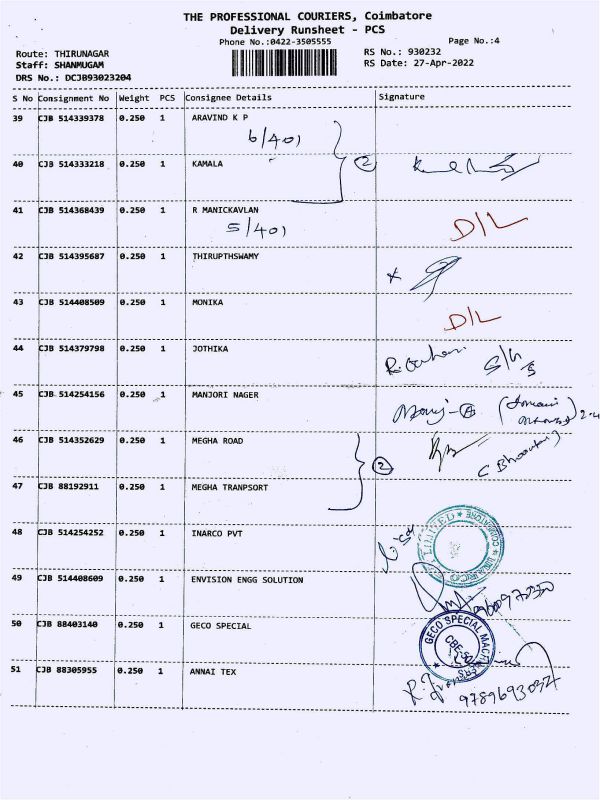 THE PROFESSIONAL COURIERS, Coimbatore
Delivery Runsheet - PCS
Phone No.:0422-3505555
Page No.:4
Route: THIRUNAGAR
RS No.: 930232
Staff: SHANMUGAM
RS Date: 27-Apr-2022
DRS No.: DCJB93023204
S No Consignment No Weight PCS Consignee Details Signature
39 CJB 514339378 0.250 1 ARAVIND K P
6/401
40 CJB 514333218 0.250 1 KAMALA 2
41 CJB 514368439 0.250 1 R MANICKAVLAN
5/401 D/L
42 CJB 514395687 0.250 1 THIRUPTHSWAMY
43 CJB 514408509 0.250 1 MONIKA
D/L
44 CJB 514379798 0.250 1 JOTHIKA
45 CJB 514254156 0.250 1 MANJORI NAGER
46 CJB 514352629 0.250 1 MEGHA ROAD
2
47 CJB 88192911 0.250 1 MEGHA TRANPSORT
48 CJB 514254252 0.250 1 INARCO PVT
INARCO LIMITED COIMBATORE
49 CJB 514408609 0.250 1 ENVISION ENGG SOLUTION
50 CJB 88403140 0.250 1 GECO SPECIAL
GECO SPECIAL
51 CJB 88305955 0.250 1 ANNAI TEX